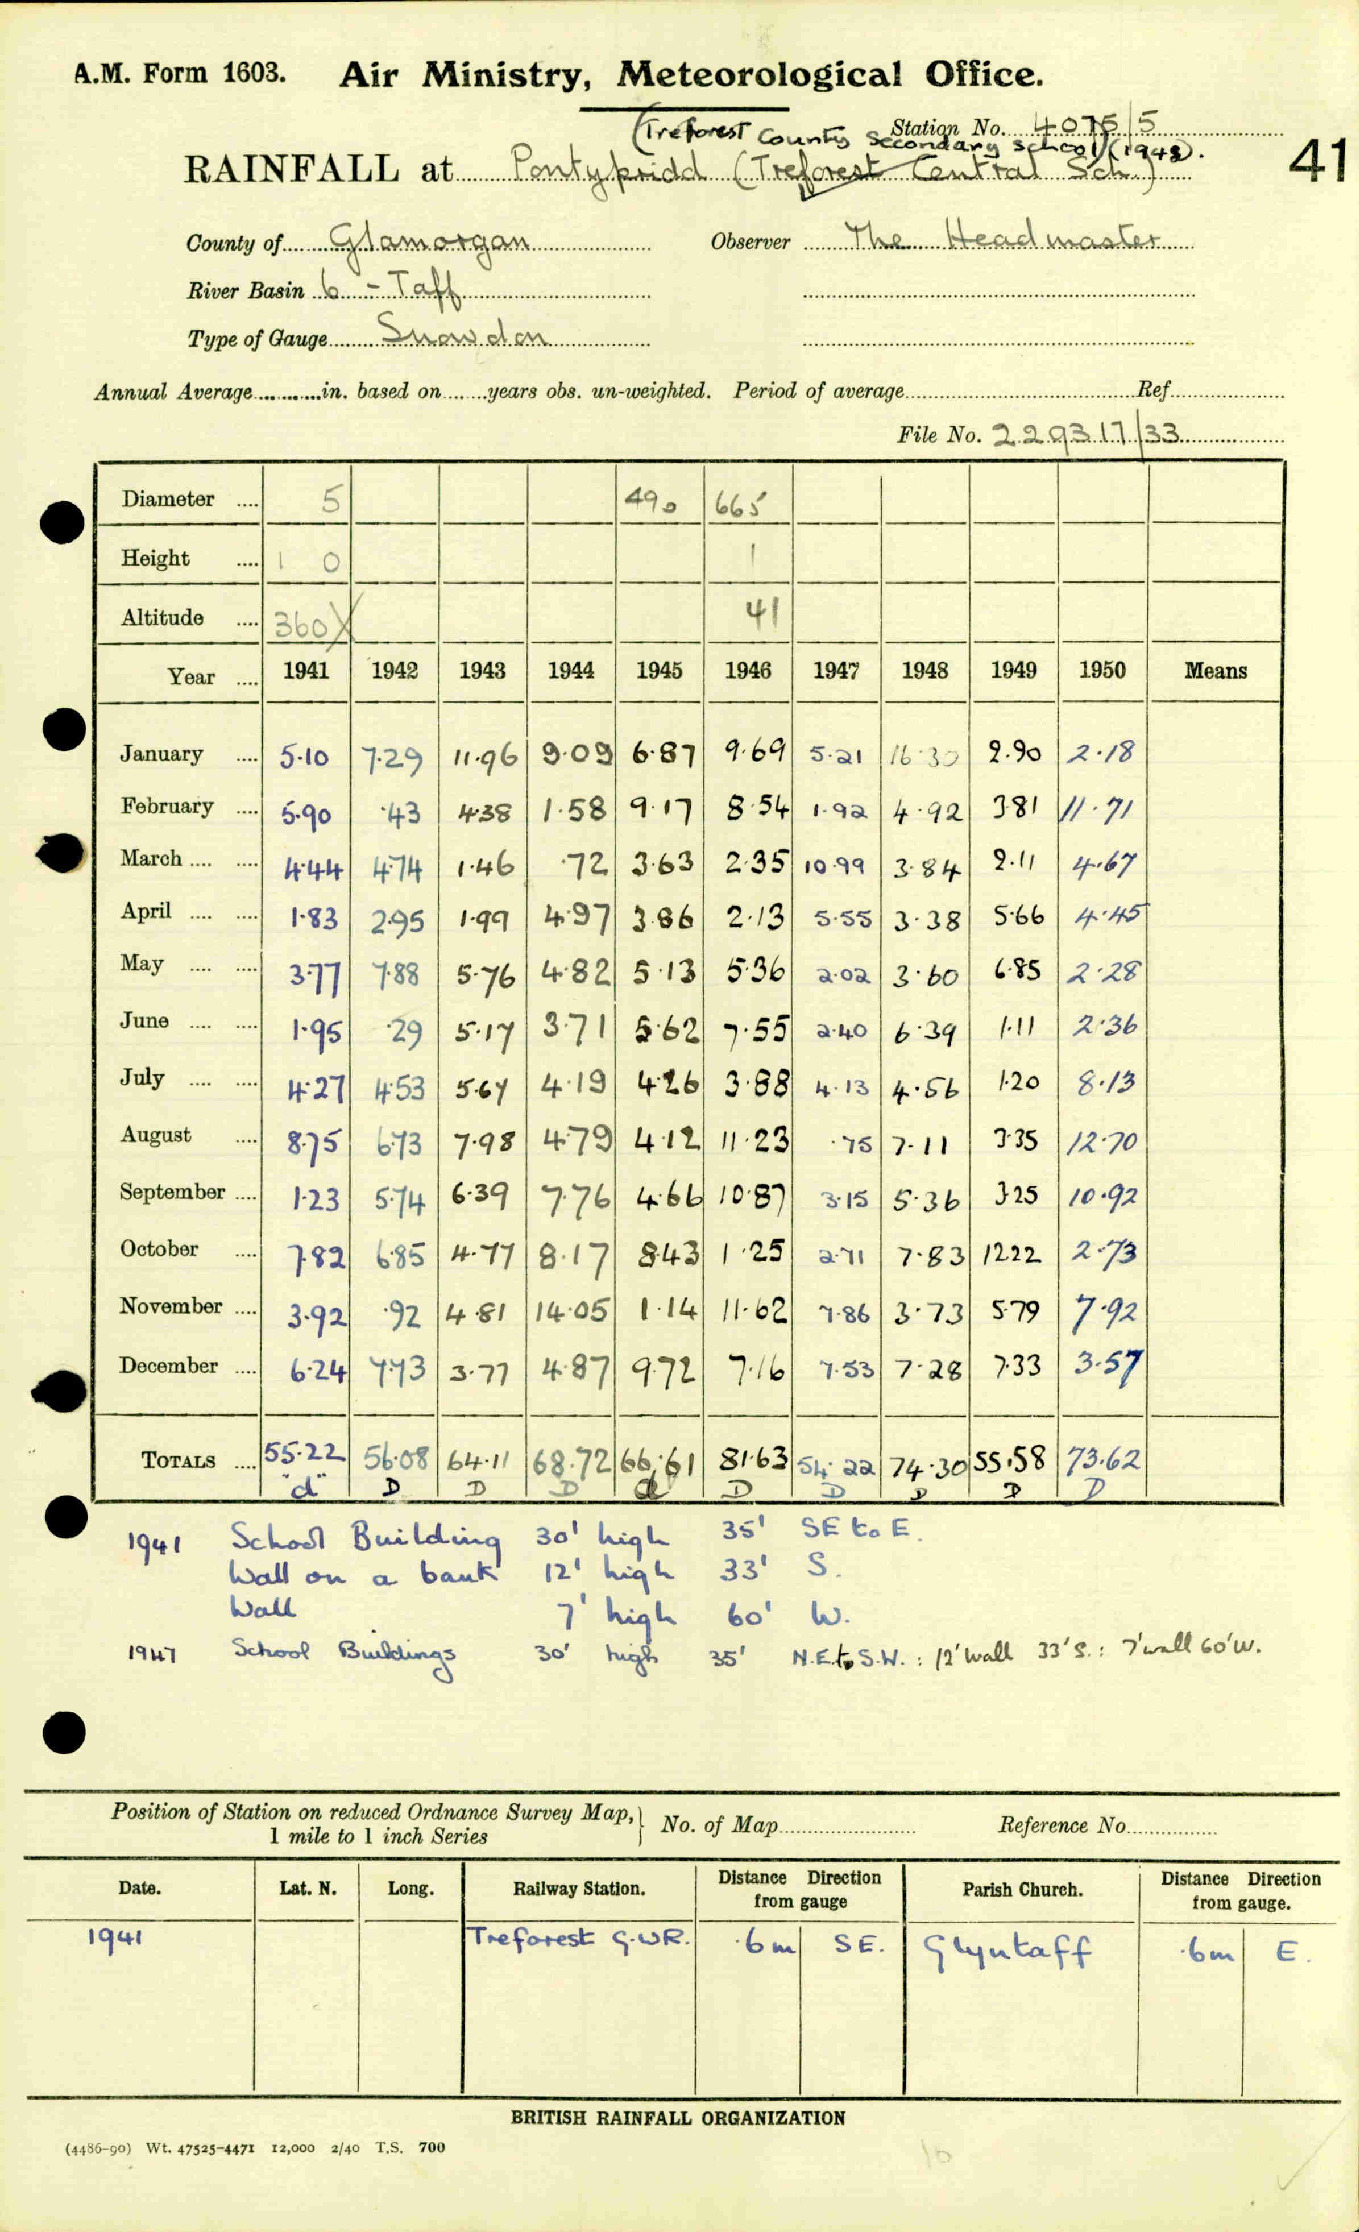 A.M. Form 1603. Air Ministry, Meteorological Office.
Station No. 4075/5
(Treforest County Secondary School) (1948).
RAINFALL at Pontypridd (Treforest Central Sch.)
41
County of Glamorgan Observer The Headmaster
River Basin 6 - Taff
Type of Gauge Snowdon
Annual Average..........in. based on.......years obs. un-weighted. Period of average Ref
File No. 229317/33
Diameter .... 5 490 665
Height .... 1 0 1
Altitude .... 360X 41
Year .... 1941 1942 1943 1944 1945 1946 1947 1948 1949 1950 Means
January .... 5·10 7·29 11·96 9·09 6·87 9·69 5·21 16·30 2·90 2·18
February .... 5·90 ·43 4·38 1·58 9·17 8·54 1·92 4·92 3·81 11·71
March .... .... 4·44 4·74 1·46 ·72 3·63 2·35 10·99 3·84 2·11 4·67
April .... .... 1·83 2·95 1·99 4·97 3·86 2·13 5·55 3·38 5·66 4·45
May .... .... 3·77 7·88 5·76 4·82 5·13 5·36 2·02 3·60 6·85 2·28
June .... .... 1·95 ·29 5·17 3·71 5·62 7·55 2·40 6·39 1·11 2·36
July .... .... 4·27 4·53 5·67 4·19 4·26 3·88 4·13 4·56 1·20 8·13
August .... 8·75 6·73 7·98 4·79 4·12 11·23 ·75 7·11 3·35 12·70
September .... 1·23 5·74 6·39 7·76 4·66 10·87 3·15 5·36 3·25 10·92
October .... 7·82 6·85 4·77 8·17 8·43 1·25 2·71 7·83 12·22 2·73
November .... 3·92 ·92 4·81 14·05 1·14 11·62 7·86 3·73 5·79 7·92
December .... 6·24 7·73 3·77 4·87 9·72 7·16 7·53 7·28 7·33 3·57
TOTALS .... 55·22 56·08 64·11 68·72 66·61 81·63 54·22 74·30 55·58 73·62
"d" D D D d D D D D D
1941 School Building 30' high 35' SE to E.
Wall on a bank 12' high 33' S.
Wall 7' high 60' W.
1947 School Buildings 30' high 35' N.E. to S.W. : 12' wall 33' S. : 7' wall 60' W.
Position of Station on reduced Ordnance Survey Map, 1 mile to 1 inch Series } No. of Map Reference No.
Date. Lat. N. Long. Railway Station. Distance Direction from gauge Parish Church. Distance Direction from gauge.
1941 Treforest G.W.R. ·6m SE. Glyntaff ·6m E.
BRITISH RAINFALL ORGANIZATION
(4486-90) Wt. 47525-4471 12,000 2/40 T.S. 700
10